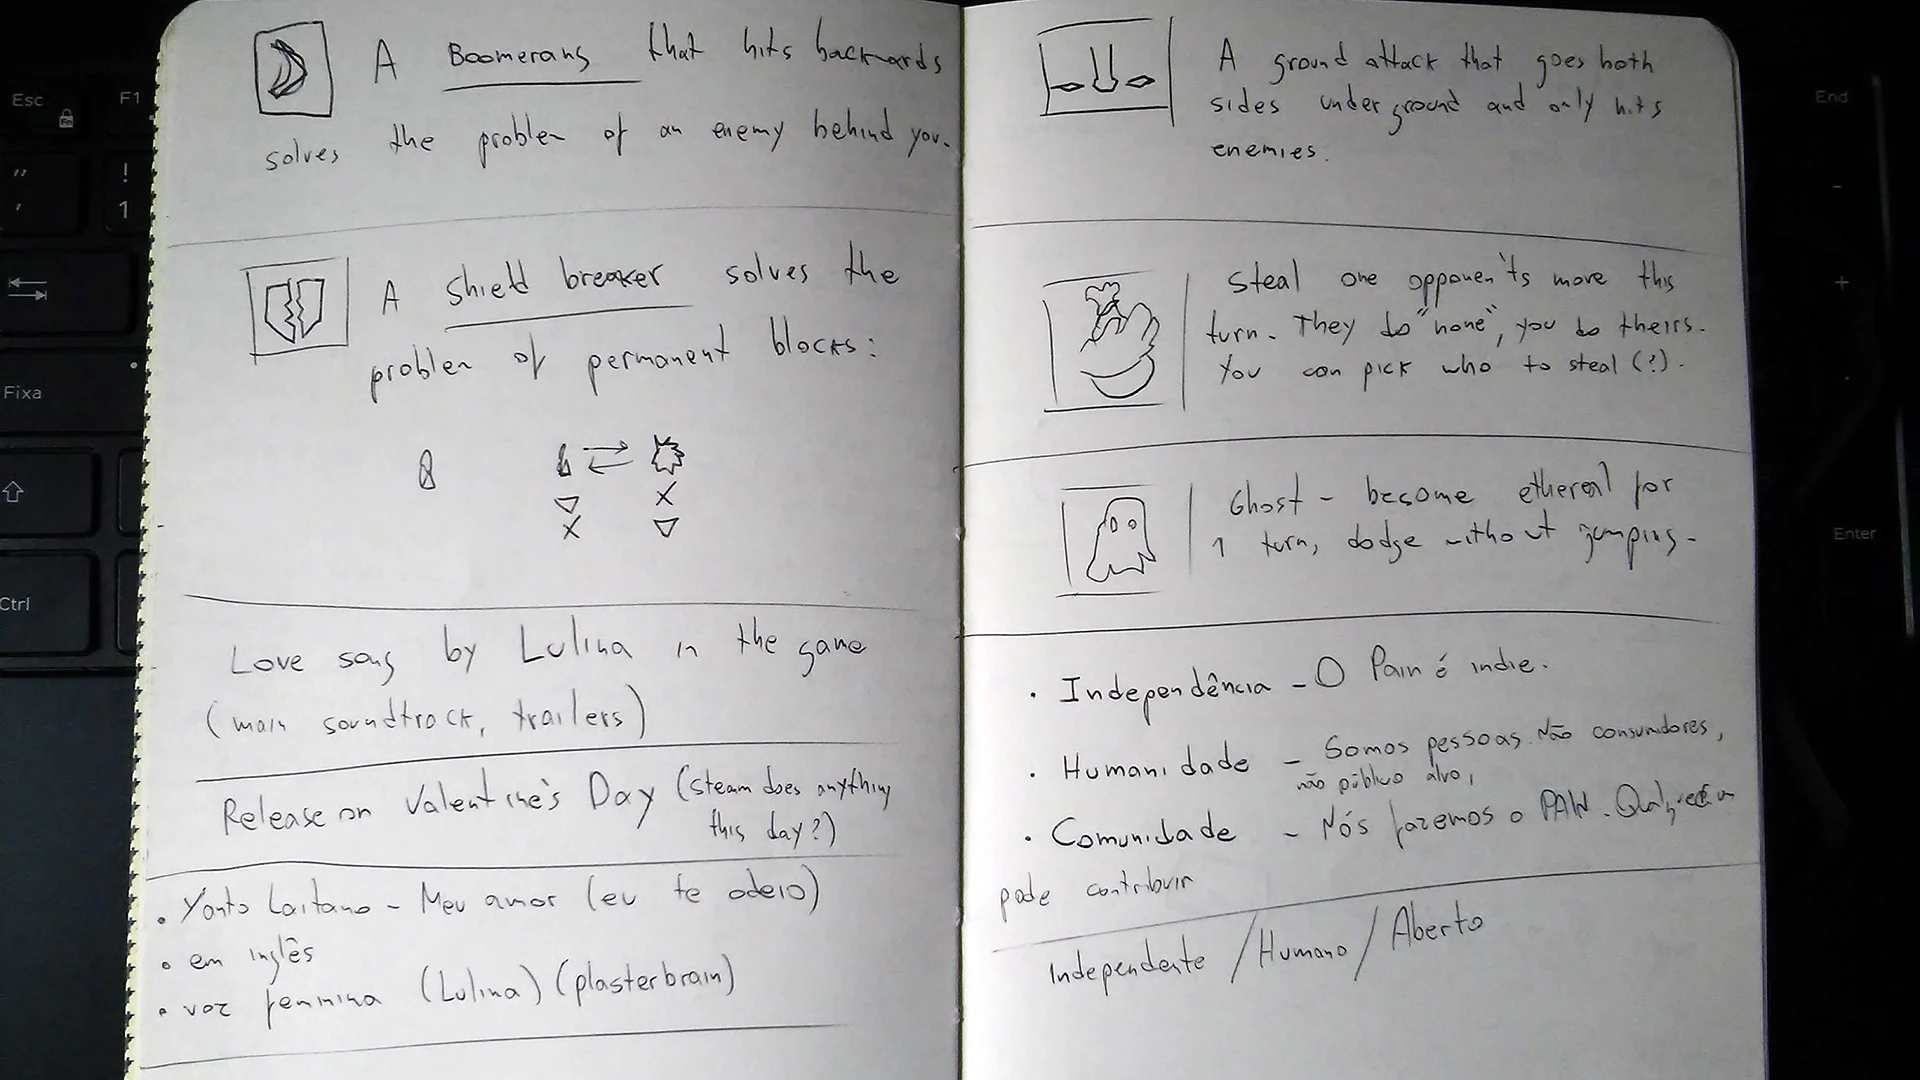 A Boomerang that hits backwards
solves the problem of an enemy behind you.
A shield breaker solves the
problem of permanent blocks:
Love song by Lulina in the game
(main soundtrack, trailers)
Release on Valentine's Day (steam does anything
this day?)
• Yanto Laitano - Meu amor (eu te odeio)
• em inglês
• voz feminina (Lulina) (plasterbrain)
A ground attack that goes both
sides underground and only hits
enemies.
Steal one opponen'ts move this
turn. They do "none", you do theirs.
You can pick who to steal (?).
Ghost - become ethereal for
1 turn, dodge without jumping.
• Independência - O Pain é indie.
• Humanidade - Somos pessoas. Não consumidores,
não público alvo,
• Comunidade - Nós fazemos o PAIN. Qualquer um
pode contribuir
Independente / Humano / Aberto
Esc
Fn
F1
"
'
!
1
Fixa
Ctrl
End
-
+
.
Enter